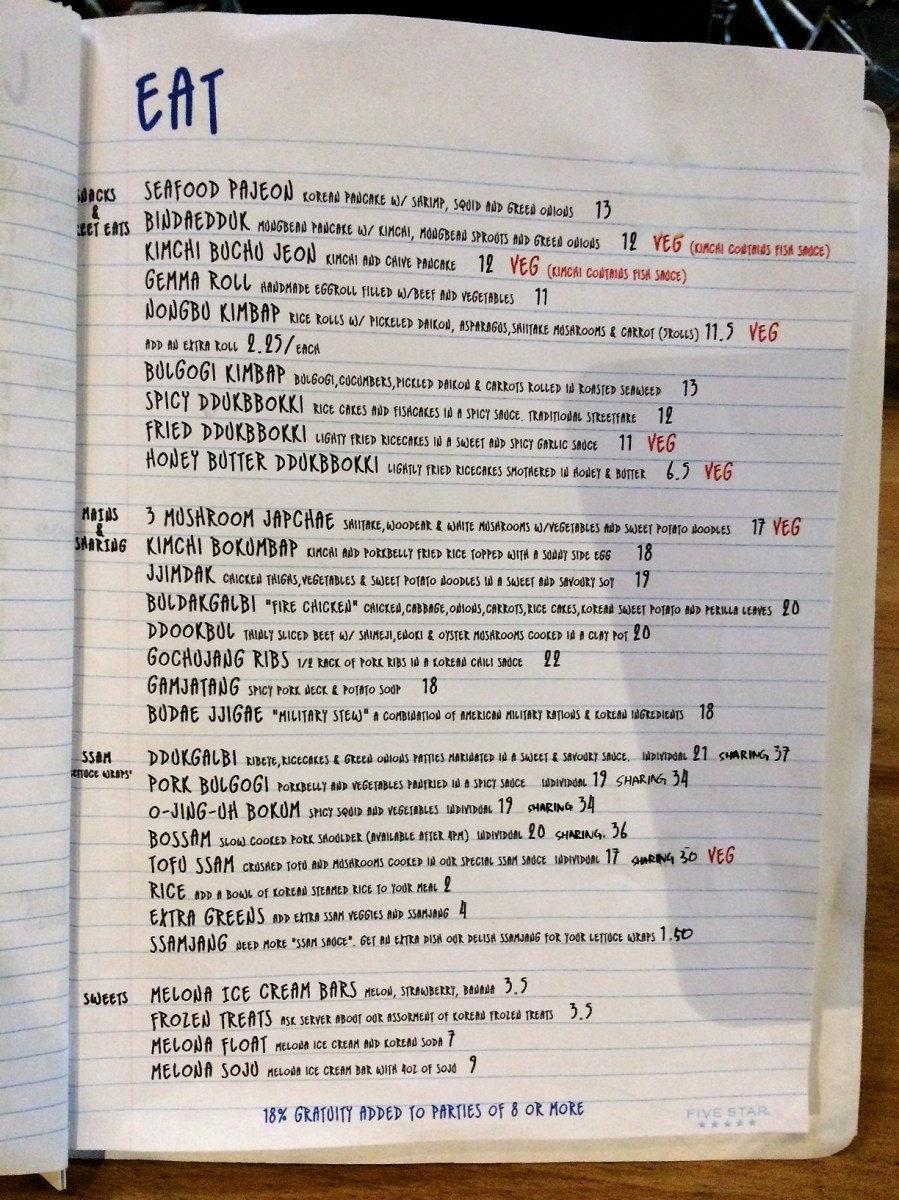 EAT
SNACKS
&
STREET EATS
SEAFOOD PAJEON KOREAN PANCAKE W/ SHRIMP, SQUID AND GREEN ONIONS 13
BINDAEDDUK MUNGBEAN PANCAKE W/ KIMCHI, MUNGBEAN SPROUTS AND GREEN ONIONS 12 VEG (KIMCHI CONTAINS FISH SAUCE)
KIMCHI BUCHU JEON KIMCHI AND CHIVE PANCAKE 12 VEG (KIMCHI CONTAINS FISH SAUCE)
GEMMA ROLL HANDMADE EGGROLL FILLED W/BEEF AND VEGETABLES 11
NONGBU KIMBAP RICE ROLLS W/ PICKELED DAIKON, ASPARAGUS, SHIITAKE MUSHROOMS & CARROT (5ROLLS) 11.5 VEG
ADD AN EXTRA ROLL 2.25/EACH
BULGOGI KIMBAP BULGOGI, CUCUMBERS, PICKLED DAIKON & CARROTS ROLLED IN ROASTED SEAWEED 13
SPICY DDUKBBOKKI RICE CAKES AND FISHCAKES IN A SPICY SAUCE. TRADITIONAL STREETFARE 12
FRIED DDUKBBOKKI LIGHTY FRIED RICECAKES IN A SWEET AND SPICY GARLIC SAUCE 11 VEG
HONEY BUTTER DDUKBBOKKI LIGHTLY FRIED RICECAKES SMOTHERED IN HONEY & BUTTER 6.5 VEG
MAINS
&
SHARING
3 MUSHROOM JAPCHAE SHIITAKE, WOODEAR & WHITE MUSHROOMS W/VEGETABLES AND SWEET POTATO NOODLES 17 VEG
KIMCHI BOKUMBAP KIMCHI AND PORKBELLY FRIED RICE TOPPED WITH A SUNNY SIDE EGG 18
JJIMDAK CHICKEN THIGHS, VEGETABLES & SWEET POTATO NOODLES IN A SWEET AND SAVOURY SOY 19
BULDAKGALBI "FIRE CHICKEN" CHICKEN, CABBAGE, ONIONS, CARROTS, RICE CAKES, KOREAN SWEET POTATO AND PERILLA LEAVES 20
DDOOKBUL THINLY SLICED BEEF W/ SHIMEJI, ENOKI & OYSTER MUSHROOMS COOKED IN A CLAY POT 20
GOCHUJANG RIBS 1/2 RACK OF PORK RIBS IN A KOREAN CHILI SAUCE 22
GAMJATANG SPICY PORK NECK & POTATO SOUP 18
BUDAE JJIGAE "MILITARY STEW" A COMBINATION OF AMERICAN MILITARY RATIONS & KOREAN INGREDIENTS 18
SSAM
LETTUCE WRAPS'
DDUKGALBI RIBEYE, RICECAKES & GREEN ONIONS PATTIES MARINATED IN A SWEET & SAVOURY SAUCE. INDIVIDUAL 21 SHARING 37
PORK BULGOGI PORKBELLY AND VEGETABLES PANFRIED IN A SPICY SAUCE INDIVIDUAL 19 SHARING 34
O-JING-UH BOKUM SPICY SQUID AND VEGETABLES INDIVIDUAL 19 SHARING 34
BOSSAM SLOW COOKED PORK SHOULDER (AVAILABLE AFTER 4PM) INDIVIDUAL 20 SHARING. 36
TOFU SSAM CRUSHED TOFU AND MUSHROOMS COOKED IN OUR SPECIAL SSAM SAUCE INDIVIDUAL 17 SHARING 30 VEG
RICE ADD A BOWL OF KOREAN STEAMED RICE TO YOUR MEAL 2
EXTRA GREENS ADD EXTRA SSAM VEGGIES AND SSAMJANG 4
SSAMJANG NEED MORE "SSAM SAUCE". GET AN EXTRA DISH OUR DELISH SSAMJANG FOR YOUR LETTUCE WRAPS 1.50
SWEETS
MELONA ICE CREAM BARS MELON, STRAWBERRY, BANANA 3.5
FROZEN TREATS ASK SERVER ABOUT OUR ASSORMENT OF KOREAN FROZEN TREATS 3.5
MELONA FLOAT MELONA ICE CREAM AND KOREAN SODA 7
MELONA SOJU MELONA ICE CREAM BAR WITH 4OZ OF SOJU 9
18% GRATUITY ADDED TO PARTIES OF 8 OR MORE
FIVE STAR